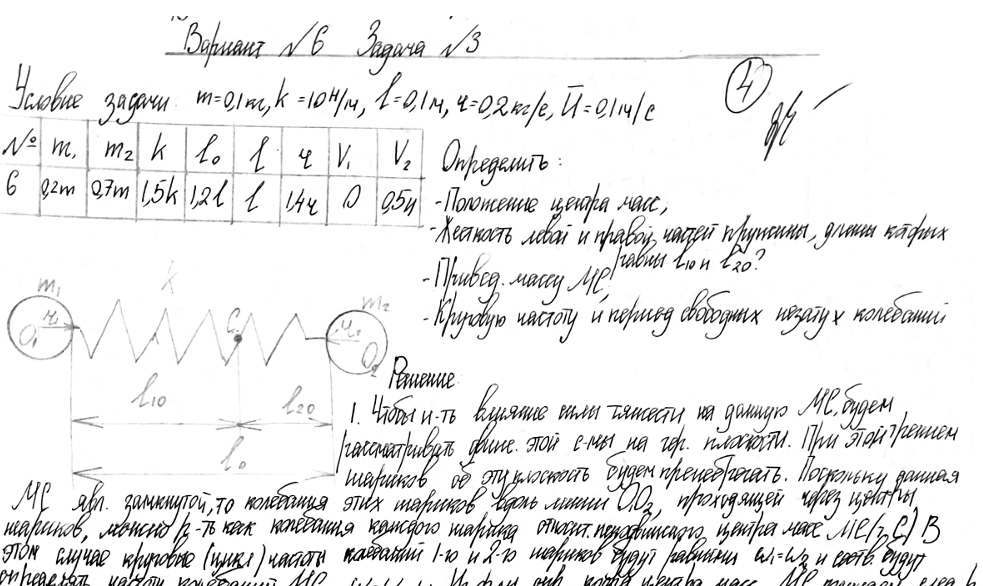 Вариант №6 Задача №3
Условие задачи m=0,1кг, k=10Н/м, l=0,1м, ч=0,2кг/с, U=0,1м/с
④
№ m₁ m₂ k l₀ l ч V₁ V₂
6 0,2m 0,7m 1,5k 1,2l l 1,4ч 0 0,5u
Определить:
-Положение центра масс,
-Жесткость левой и правой частей пружины, длины которых
равны l₁₀ и l₂₀?
-Привед. массу МС,
-Круговую частоту и период свободных незатух колебаний
m₁ k m₂
O₁ C O₂
l₁₀ l₂₀
l₀
Решение
1. Чтобы и-ть влияние силы тяжести на данную МС, будем
рассматривать движ. этой с-мы на гор. плоскости. При этом трением
шариков об эту плоскость будем пренебрегать. Поскольку данная
МС явл. замкнутой, то колебания этих шариков вдоль линии OO₂, проходящей через центры
шариков, можно р-ть как колебания каждого шарика относит. центра масс МС(т.С) В
этом случае круговые (цикл) частоты колебаний 1-го и 2-го шариков будут равными ω₁=ω₂ и соотв. будут
определять частоту колебаний МС